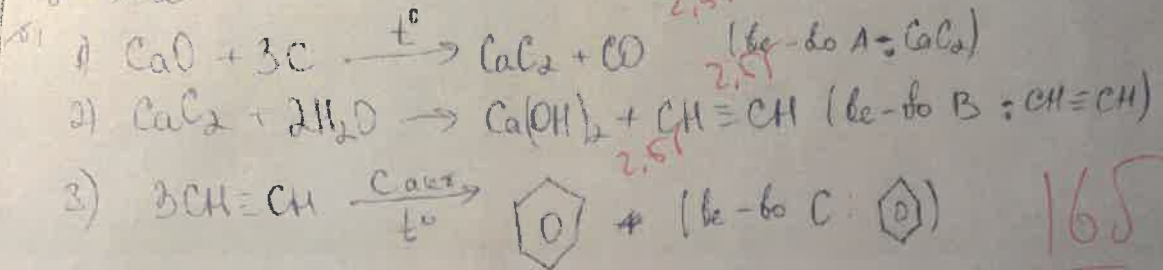 2,5б
№1 1) CaO + 3C —t°→ CaC₂ + CO (ве-во A: CaC₂)
2,5б
2) CaC₂ + 2H₂O → Ca(OH)₂ + CH≡CH (ве-во B: CH≡CH)
2,5б
3) 3CH≡CH —C акт, t°→ (ве-во C: )
16б